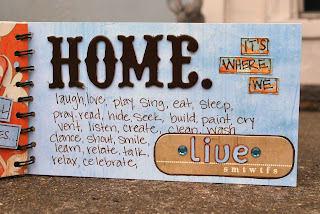 HOME.
IT'S
WHERE
WE
laugh, love, play, sing, eat, sleep,
pray, read, hide, seek, build, paint, cry
vent, listen, create, clean, wash
dance, shout, smile,
learn, relate, talk,
relax, celebrate,
live
smtwtfs